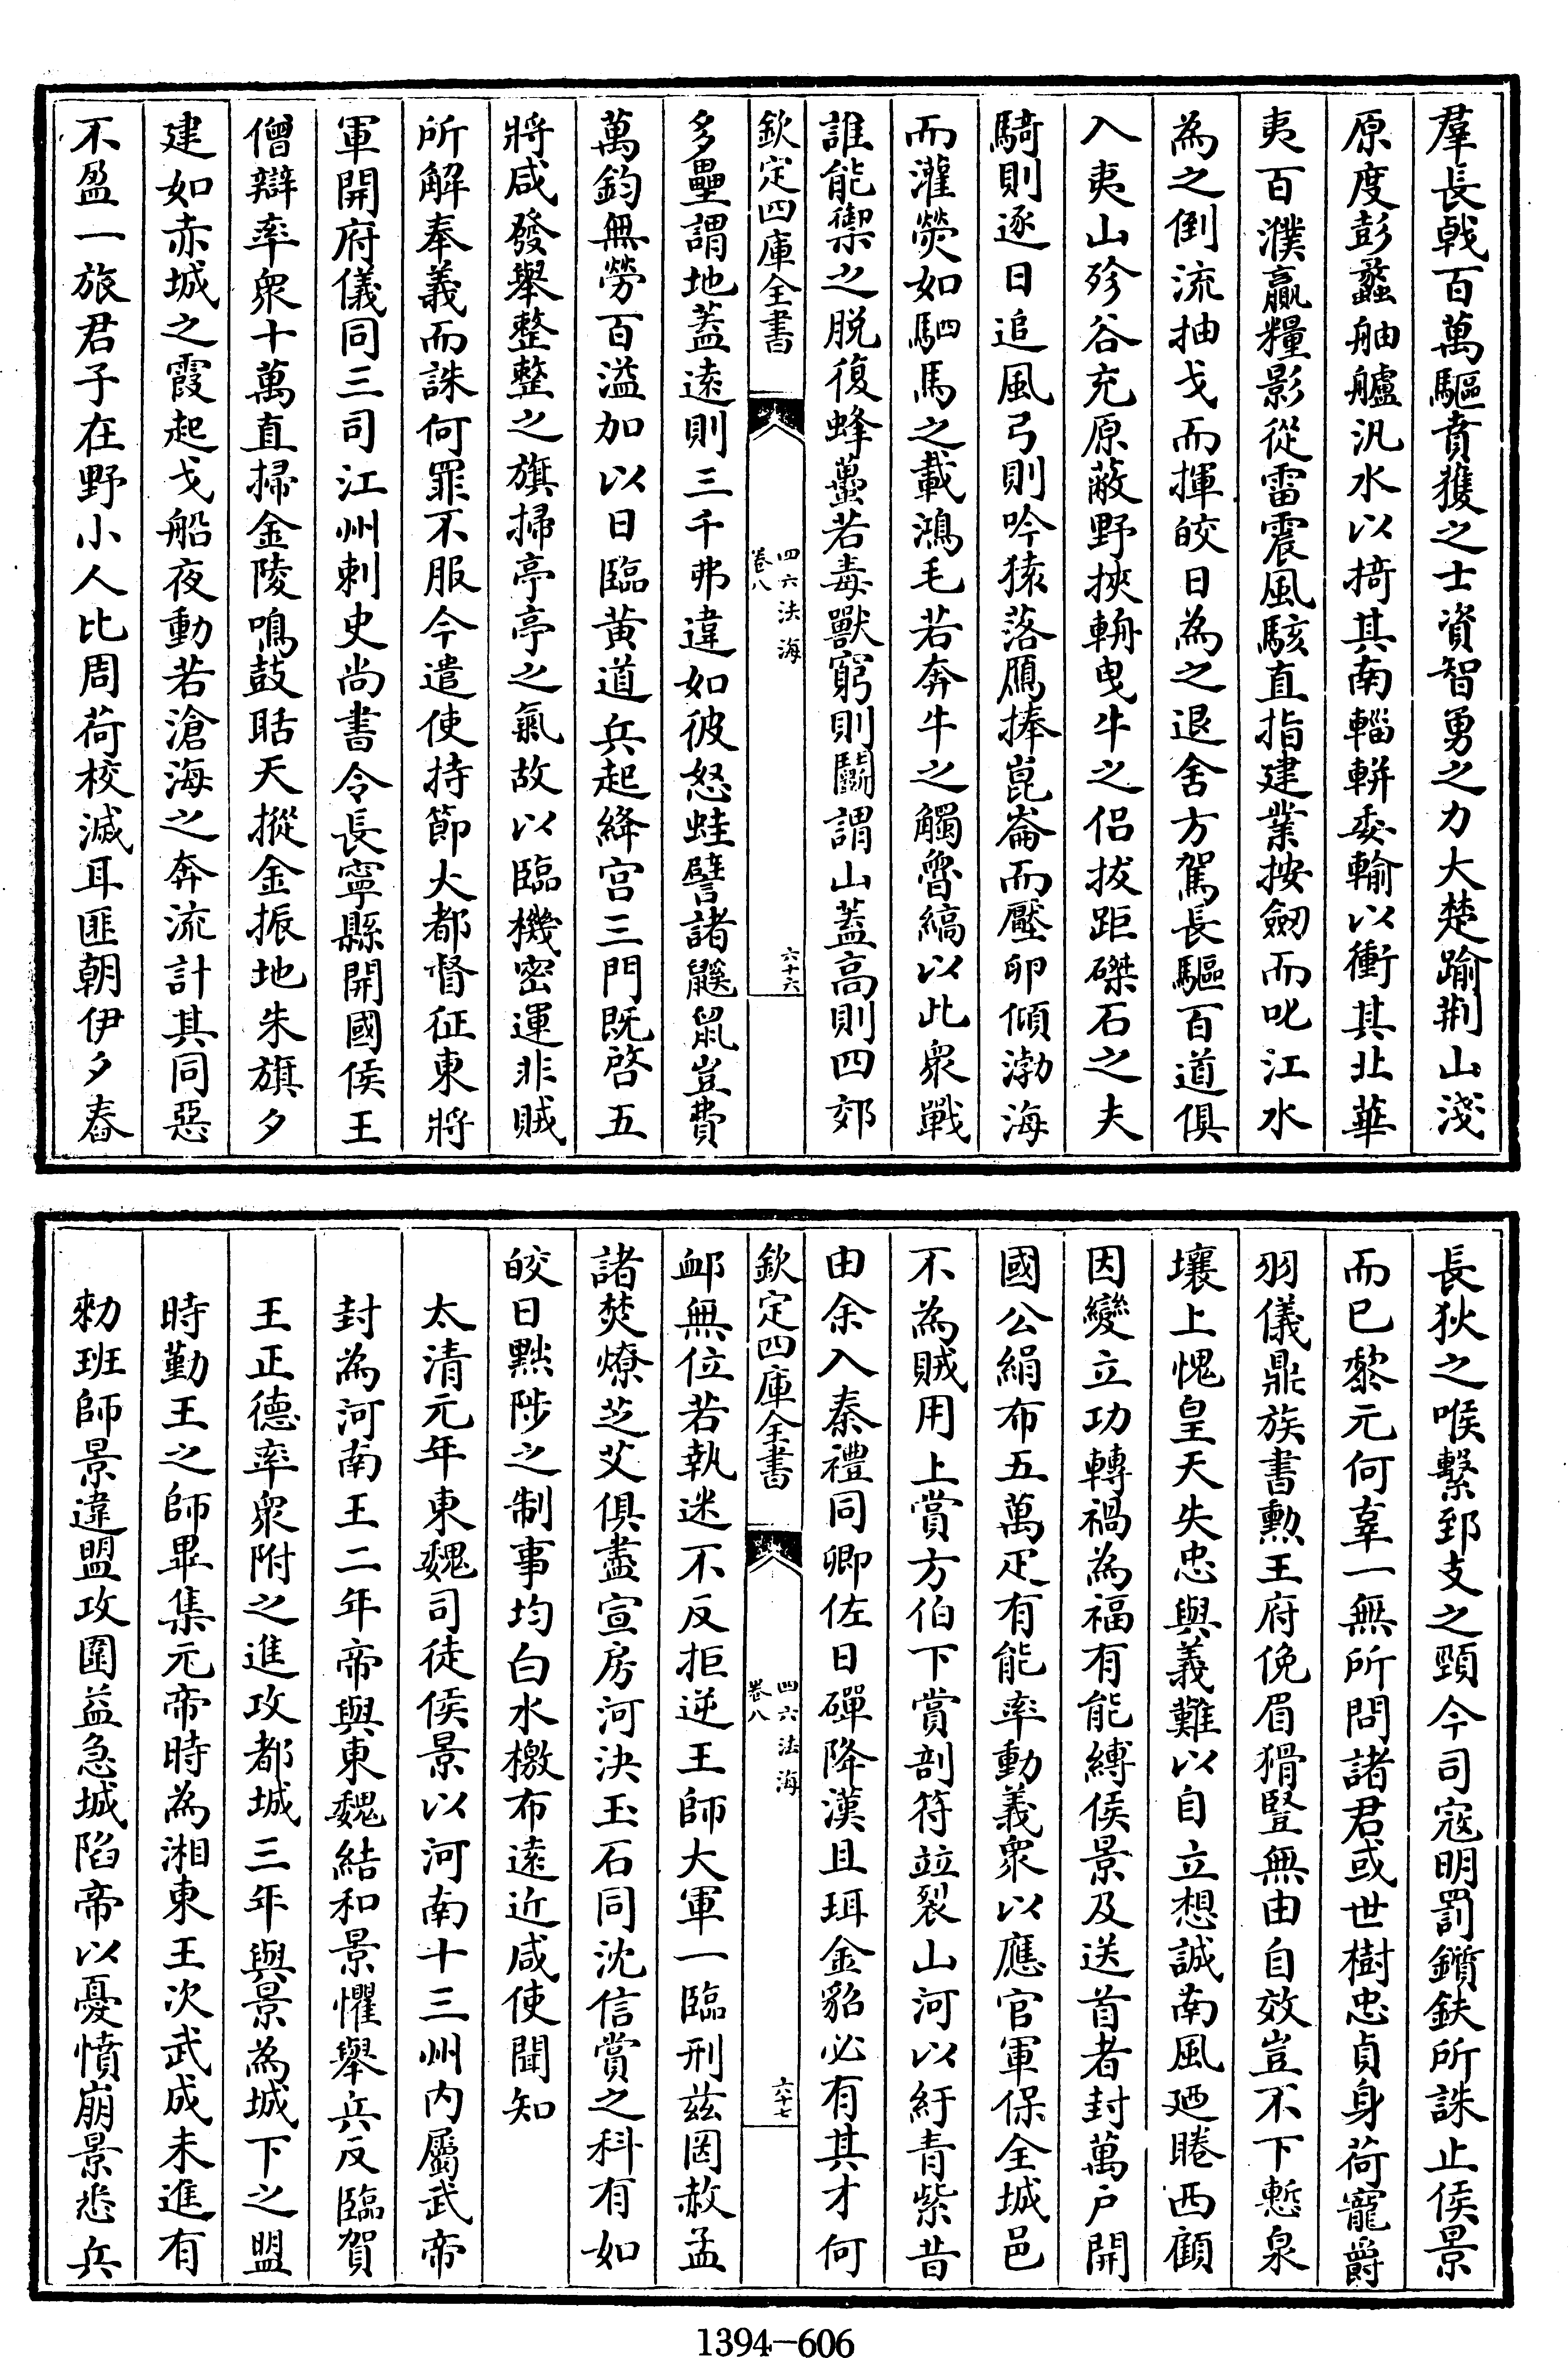 羣長戟百萬驅賁獲之士資智勇之力大楚踰荆山淺
原度彭蠡舳艫汎水以掎其南輜軿委輸以衝其北華
夷百濮贏糧影從雷震風駭直指建業按劒而叱江水
為之倒流抽戈而揮皎日為之退舍方駕長驅百道俱
入夷山殄谷充原蔽野挾輈曳牛之侣拔距磔石之夫
騎則逐日追風弓則吟猿落鴈捧崑崙而壓卵傾渤海
而灌熒如駟馬之載鴻毛若奔牛之觸魯縞以此衆戰
誰能禦之脱復蜂蠆若毒獸窮則鬭謂山葢高則四郊
欽定四庫全書
四六法海
卷八
六十六
多壘謂地葢逺則三千弗違如彼怒蛙譬諸鼷鼠豈費
萬鈞無勞百溢加以日臨黄道兵起絳宫三門既啓五
將咸發舉整整之旗掃亭亭之氣故以臨機密運非賊
所解奉義而誅何罪不服今遣使持節大都督征東將
軍開府儀同三司江州刺史尚書令長寧縣開國侯王
僧辯率衆十萬直掃金陵鳴鼓聒天摐金振地朱旗夕
建如赤城之霞起戈船夜動若滄海之奔流計其同惡
不盈一旅君子在野小人比周荷校滅耳匪朝伊夕舂
長狄之喉繫郅支之頸今司寇明罰鑕鈇所誅止侯景
而已黎元何辜一無所問諸君或世樹忠貞身荷寵爵
羽儀鼎族書勲王府俛眉猾豎無由自效豈不下慙泉
壤上愧皇天失忠與義難以自立想誠南風廼睠西顧
因變立功轉禍為福有能縛侯景及送首者封萬戸開
國公絹布五萬疋有能率動義衆以應官軍保全城邑
不為賊用上賞方伯下賞剖符竝裂山河以紆青紫昔
由余入秦禮同卿佐日磾降漢且珥金貂必有其才何
欽定四庫全書
四六法海
卷八
六十七
䘏無位若執迷不反拒逆王師大軍一臨刑兹罔赦孟
諸焚燎芝艾俱盡宣房河決玉石同沈信賞之科有如
皎日黜陟之制事均白水檄布逺近咸使聞知
太清元年東魏司徒侯景以河南十三州内屬武帝
封為河南王二年帝與東魏結和景懼舉兵反臨賀
王正德率衆附之進攻都城三年與景為城下之盟
時勤王之師畢集元帝時為湘東王次武成未進有
勑班師景違盟攻圍益急城陷帝以憂憤崩景悉兵
1394-606